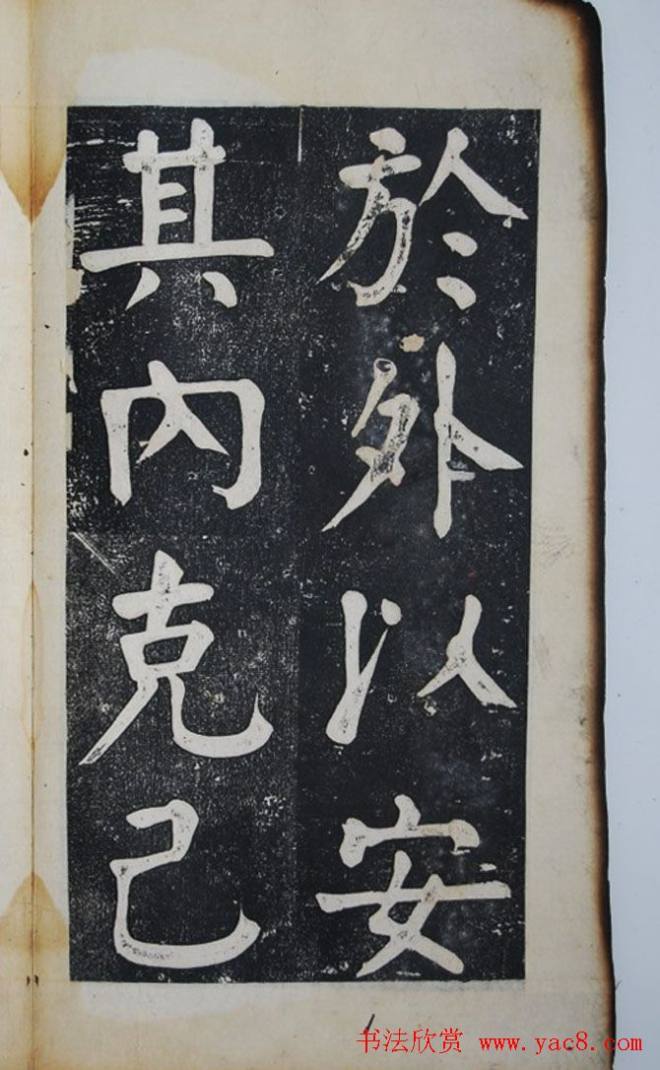 於外以安
其內克己
书法欣赏 www.yac8.com